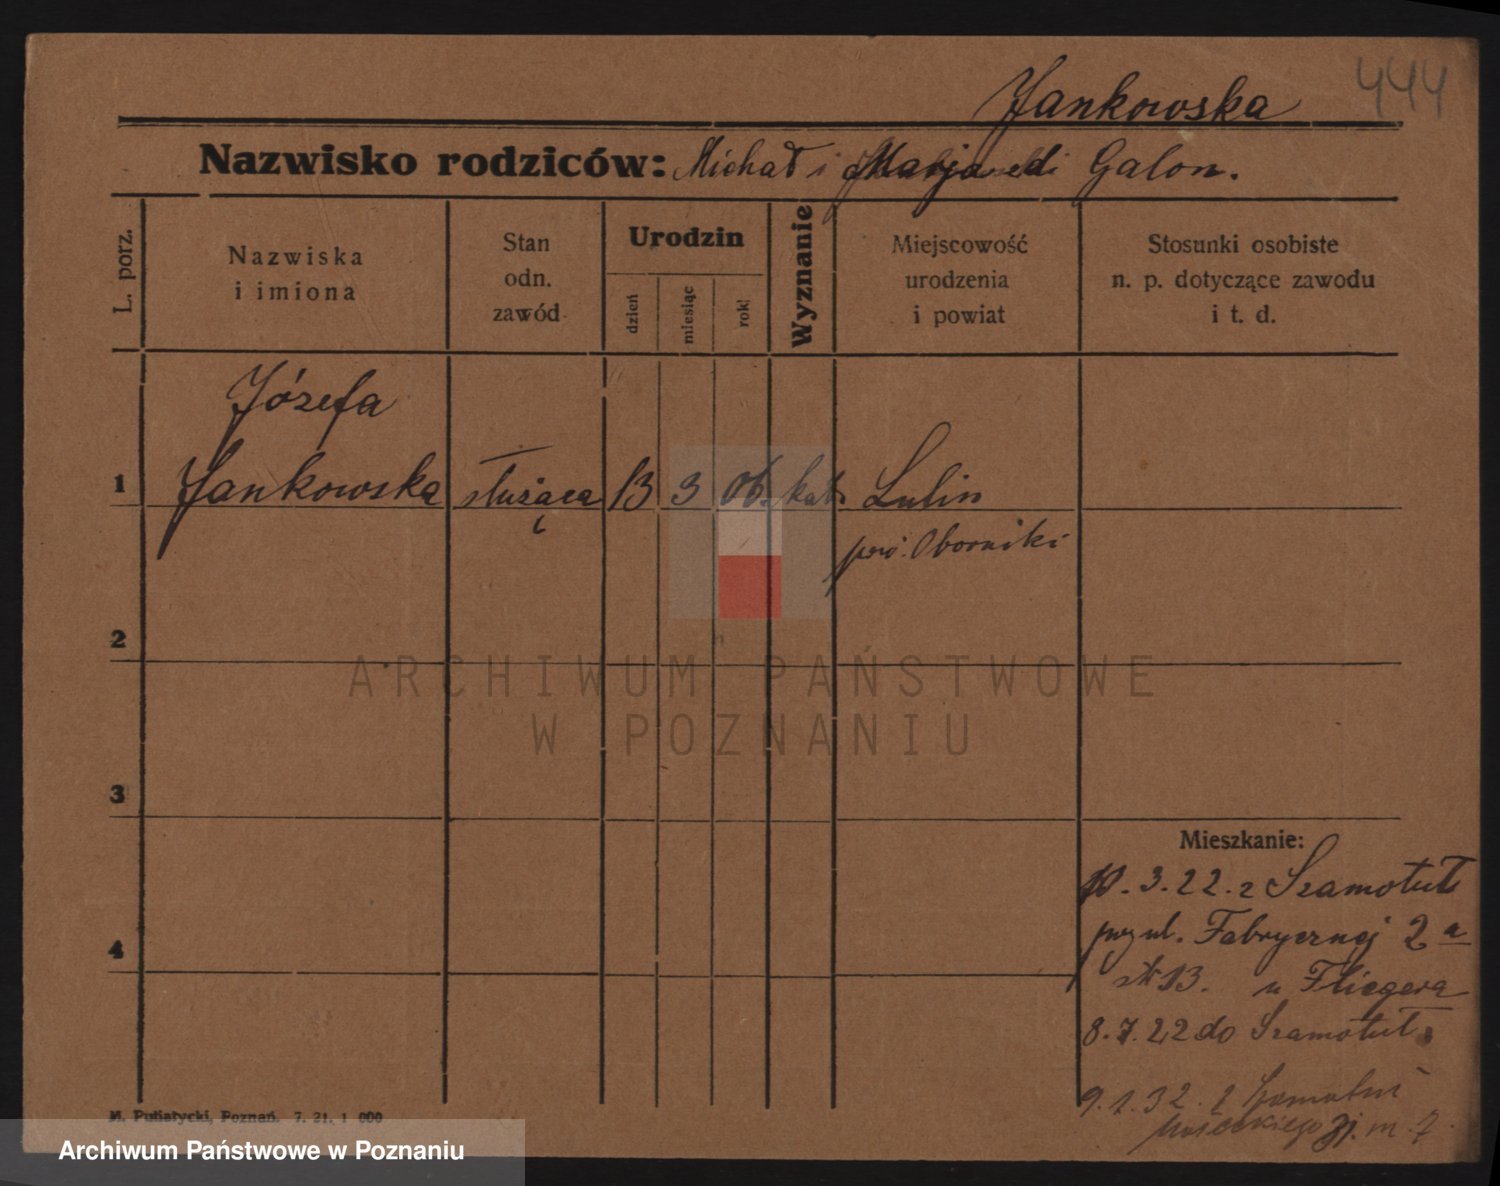 444
Jankowska
Nazwisko rodziców: Michał i Marja di Galon.
L. porz.
Nazwiska
i imiona
Stan
odn.
zawód
Urodzin
dzień
miesiąc
rok
Wyznanie
Miejscowość
urodzenia
i powiat
Stosunki osobiste
n. p. dotyczące zawodu
i t. d.
Józefa
1 Jankowska służąca 13 3 06. kat. Lulin
pow. Oborniki
2
ARCHIWUM PAŃSTWOWE
W POZNANIU
3
Mieszkanie:
10.3.22. z Szamotuł
przy ul. Fabrycznej 2 a
4
u Fliegera
8.7.22 do Szamotuł.
9.1.32. z
m. 7.
M. Putiatycki, Poznań. 7. 21. 1 000
Archiwum Państwowe w Poznaniu